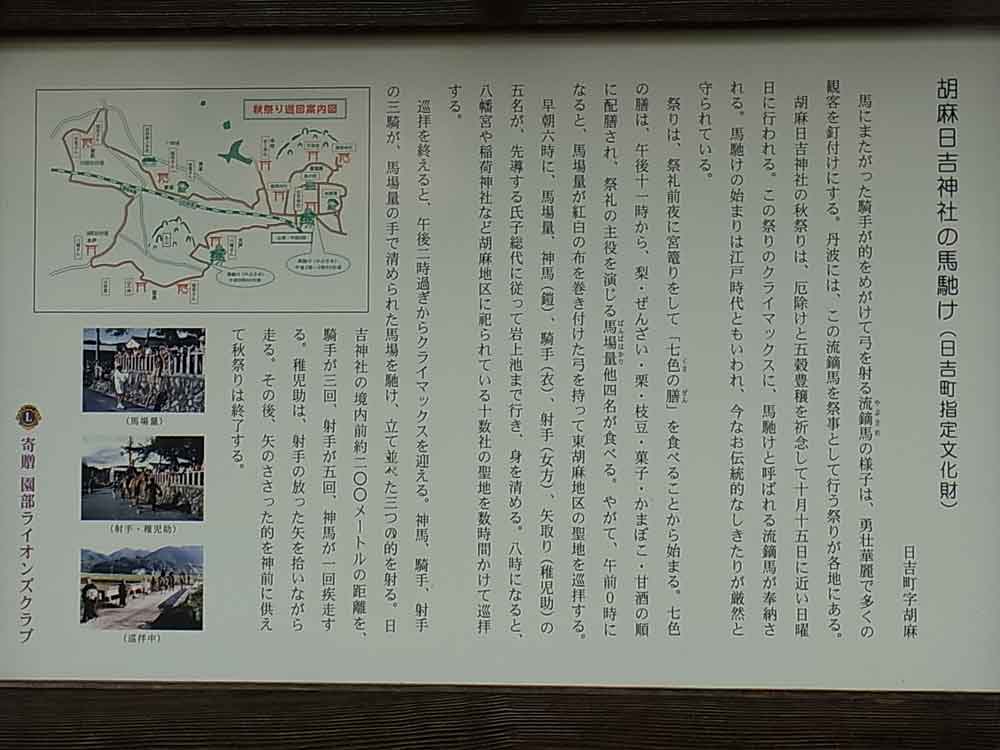 胡麻日吉神社の馬馳け(日吉町指定文化財)
日吉町字胡麻
馬にまたがった騎手が的をめがけて弓を射る流鏑馬の様子は、勇壮華麗で多くの
やぶさめ
観客を釘付けにする。丹波には、この流鏑馬を祭事として行う祭りが各地にある。
胡麻日吉神社の秋祭りは、厄除けと五穀豊穣を祈念して十月十五日に近い日曜
日に行われる。この祭りのクライマックスに、馬馳けと呼ばれる流鏑馬が奉納さ
れる。馬馳けの始まりは江戸時代ともいわれ、今なお伝統的なしきたりが厳然と
守られている。
祭りは、祭礼前夜に宮籠りをして「七色の膳」を食べることから始まる。七色
の膳は、午後十一時から、梨・ぜんざい・栗・枝豆・菓子・かまぼこ・甘酒の順
に配膳され、祭礼の主役を演じる馬場量他四名が食べる。やがて、午前0時に
ばんばはかり
なると、馬場量が紅白の布を巻き付けた弓を持って東胡麻地区の聖地を巡拝する。
早朝六時に、馬場量、神馬(鎧)、騎手(衣)、射手(女方)、矢取り(稚児助)の
五名が、先導する氏子総代に従って岩上池まで行き、身を清める。八時になると、
八幡宮や稲荷神社など胡麻地区に祀られている十数社の聖地を数時間かけて巡拝
する。
巡拝を終えると、午後二時過ぎからクライマックスを迎える。神馬、騎手、射手
の三騎が、馬場量の手で清められた馬場を馳け、立て並べた三つの的を射る。日
吉神社の境内前約二〇〇メートルの距離を、
騎手が三回、射手が五回、神馬が一回疾走す
る。稚児助は、射手の放った矢を拾いながら
走る。その後、矢のささった的を神前に供え
て秋祭りは終了する。
秋祭り巡回案内図
(馬場量)
(射手・稚児助)
(巡拝中)
L
寄贈 園部ライオンズクラブ